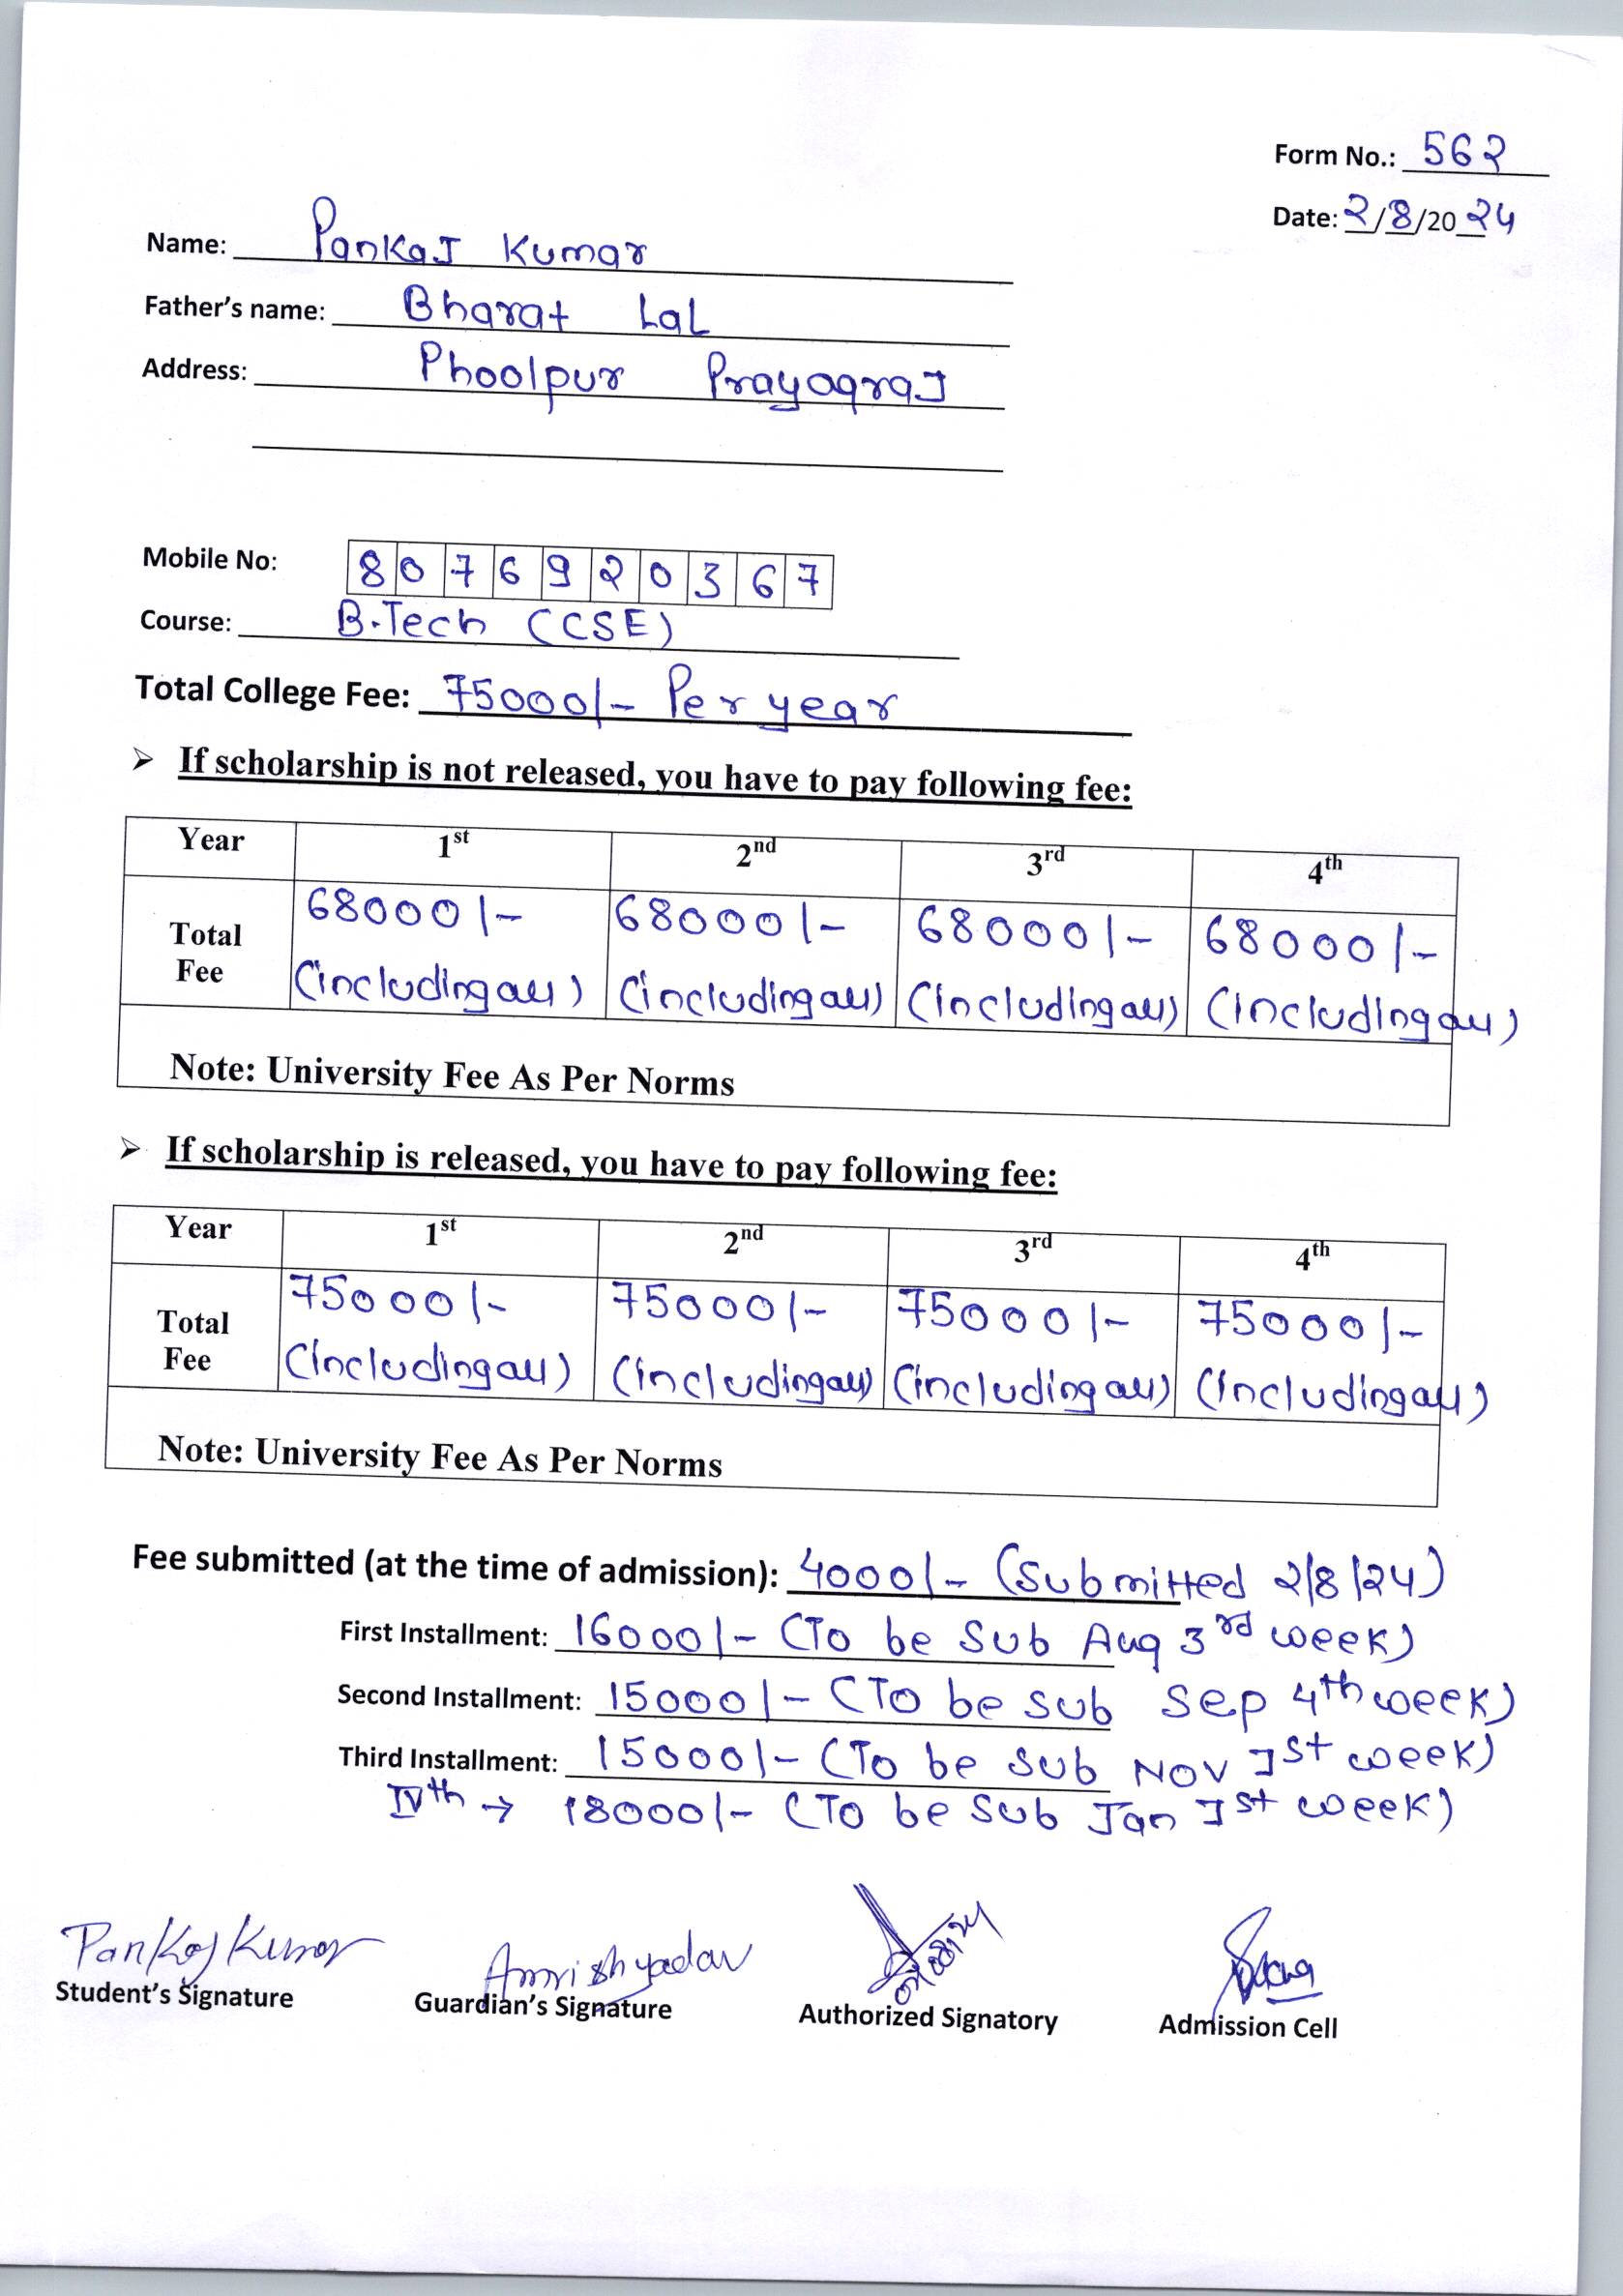 Form No.: 562
Date: 2/8/2024
Name: Pankaj Kumar
Father's name: Bharat Lal
Address: Phoolpur Prayagraj
Mobile No: 8076920367
Course: B.Tech (CSE)
Total College Fee: 75000/- Per year
➢ If scholarship is not released, you have to pay following fee:
Year 1st 2nd 3rd 4th
Total Fee 68000/- 68000/- 68000/- 68000/-
(including all) (including all) (including all) (including all)
Note: University Fee As Per Norms
➢ If scholarship is released, you have to pay following fee:
Year 1st 2nd 3rd 4th
Total Fee 75000/- 75000/- 75000/- 75000/-
(including all) (including all) (including all) (including all)
Note: University Fee As Per Norms
Fee submitted (at the time of admission): 4000/- (Submitted 2/8/24)
First Installment: 16000/- (To be Sub Aug 3rd week)
Second Installment: 15000/- (To be sub Sep 4th week)
Third Installment: 15000/- (To be sub Nov Ist week)
IVth → 18000/- (To be Sub Jan Ist week)
Pankaj Kumar Amrish yadav
Student's Signature Guardian's Signature Authorized Signatory Admission Cell